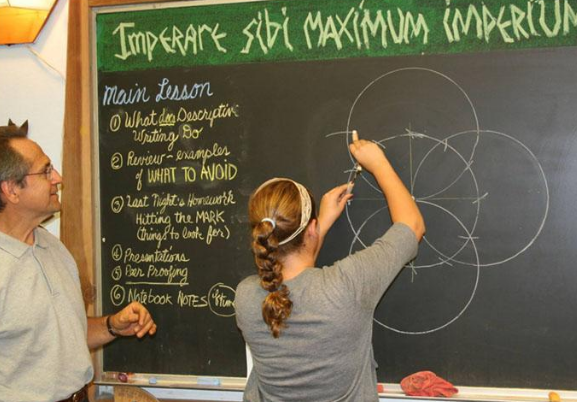 IMPERARE SIBI MAXIMUM IMPERIUM
Main Lesson
① What does Descriptive
Writing Do
② Review - examples
of WHAT TO AVOID
③ Last Night's Homework
Hitting the MARK
(things to look for)
④ Presentations
⑤ Peer Proofing
⑥ Notebook NOTES